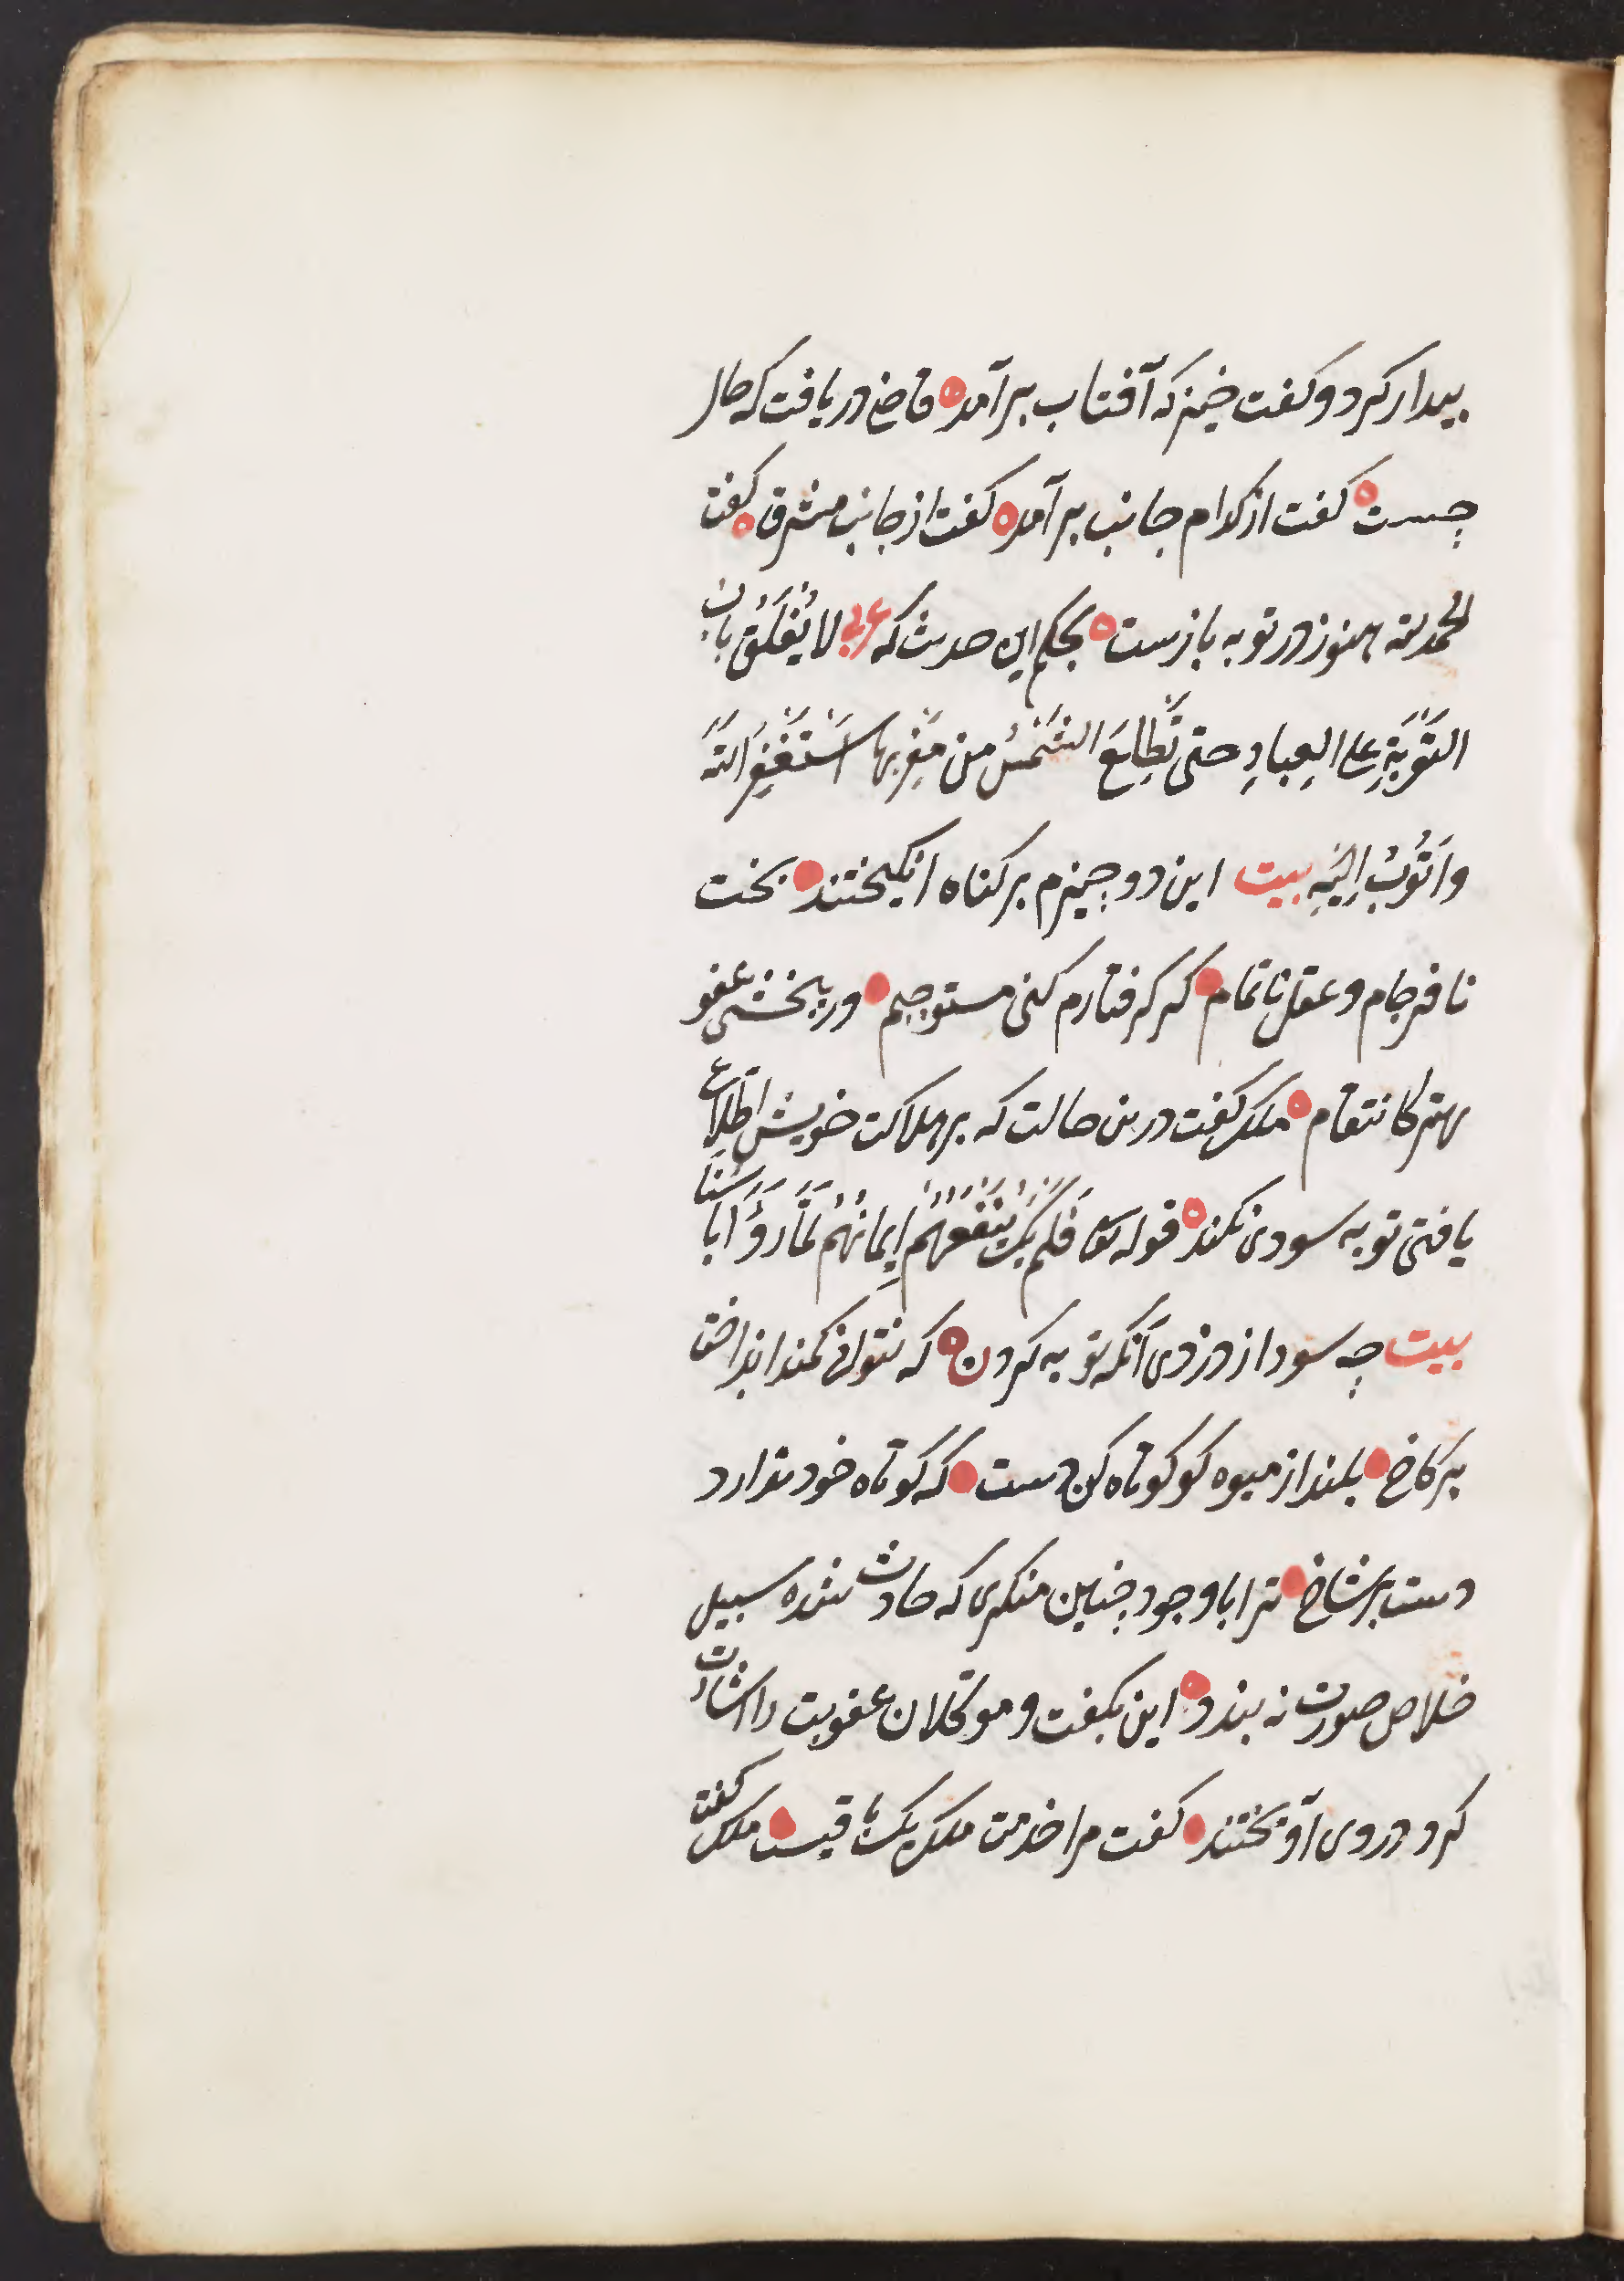 بیدار کرد و کفت خیز که آفتاب برآمد قاضی دریافت که حال
چیست کفت از کدام جانب برآمد کفت از جانب مشرق کفت
الحمد لله هنوز در توبه بازست بحکم این حدیث که عربی لا یُغلَقُ بابُ
التَّوْبَةِ علی العِبادِ حتی تَطلِعَ الشَّمْسُ من مَغْرِبِها اَسْتَغْفِرُ اللهَ
وَاَتُوبُ اِلَیْهِ بیت این دو چیزم بر کناه انکیختند بخت
نافرجام و عقل ناتمام کر کرفتارم کنی مستوجبم ور ببخشی عفو
بهتر کانتقام ملک کفت درین حالت که بر هلاکت خویش اطلاع
یافتی توبه سودی نکند قوله تعالی فَلَمْ یَکُ یَنْفَعُهُمْ اِیمانُهُمْ لَمَّا رَأَوْا بَأْسَنَا
بیت چه سود از دزدی آنکه توبه کردن که نتوانی کمند انداخت
بر کاخ بلند از میوه کو کوتاه کن دست که کوتاه خود ندارد
دست بر شاخ ترا با وجود چنین منکری که حادث شده سبیل
خلاص صورت نه بندد این بکفت و موکلان عقوبت را اشارت
کرد در وی آویختند کفت مرا خدمت ملک یک باقیست ملک کفت